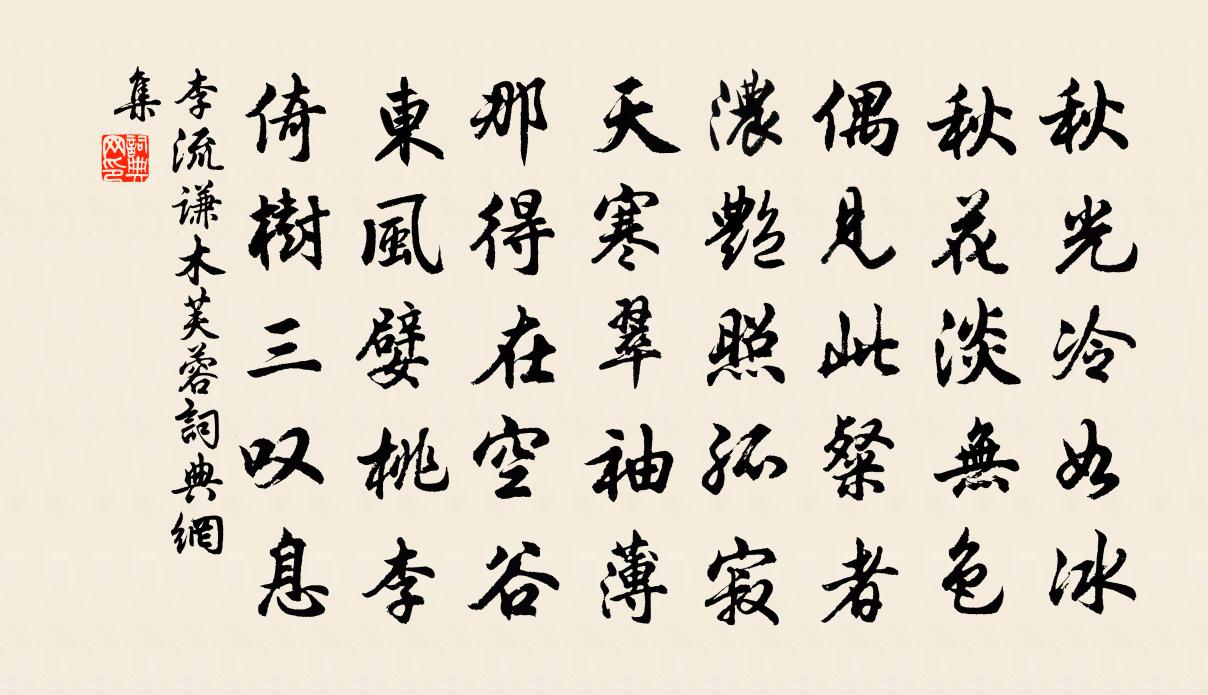 秋光冷如冰
秋花淡無色
偶見此粲者
濃艷照孤寂
天寒翠袖薄
那得在空谷
東風嬖桃李
倚樹三叹息
李流谦木芙蓉詞典網
集
詞典
网印